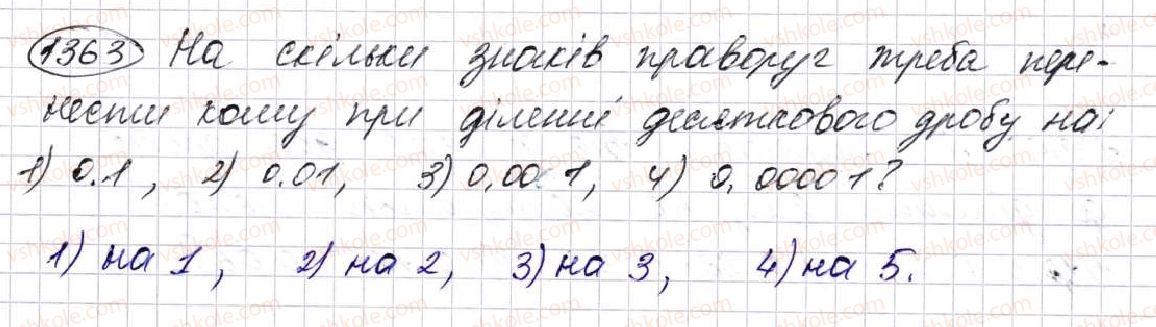 1363 На скільки знаків праворуч треба пере-
нести кому при діленні десяткового дробу на:
1) 0.1, 2) 0.01, 3) 0,001, 4) 0,00001?
1) на 1, 2) на 2, 3) на 3, 4) на 5.